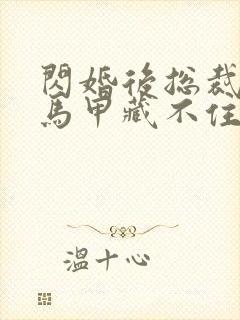 閃婚後總裁
馬甲藏不住
溫十心